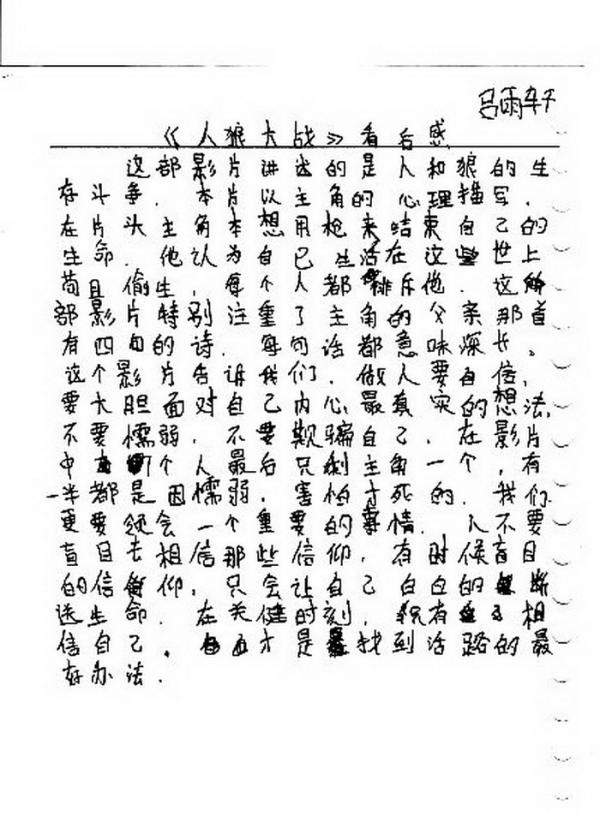 吕雨轩
《人狼大战》看后感
这部影片讲述的是人和狼的生
存斗争. 本片以主角的心理描写.
在片头主角本想用枪来结束自己的
生命. 他认为自己生活在这些世上
苟且偷生, 每个人都排斥他. 这
部影片特别注重了主角的父亲那首
有四句的诗. 每句话都意味深长.
这个影片告诉我们. 做人要自信,
要大胆面对自己内心最真实的想法,
不要懦弱. 不要欺骗自己. 在影片
中 个人最后只剩主角一个, 有
一半都是因懦弱. 害怕才死的. 我们
更要领会一个重要的事情. 人不要
盲目去相信那些信仰. 有时候盲目
的信仰. 只会让自己白白的断
送生命. 在关健时刻. 只有相
信自己. 才是找到活路的最
好办法.